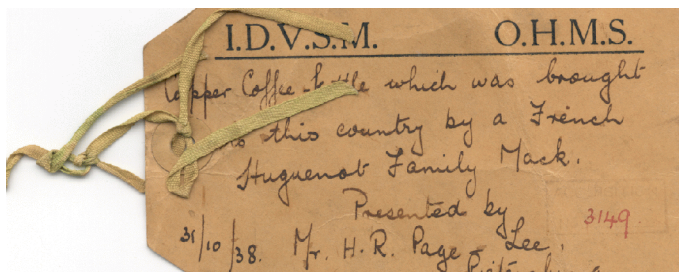 I.D.V.S.M. O.H.M.S.
Copper Coffee-kettle which was brought
to this country by a French
Huguenot Family Mack.
Presented by
3149
31/10/38. Mr. H.R. Page-Lee,